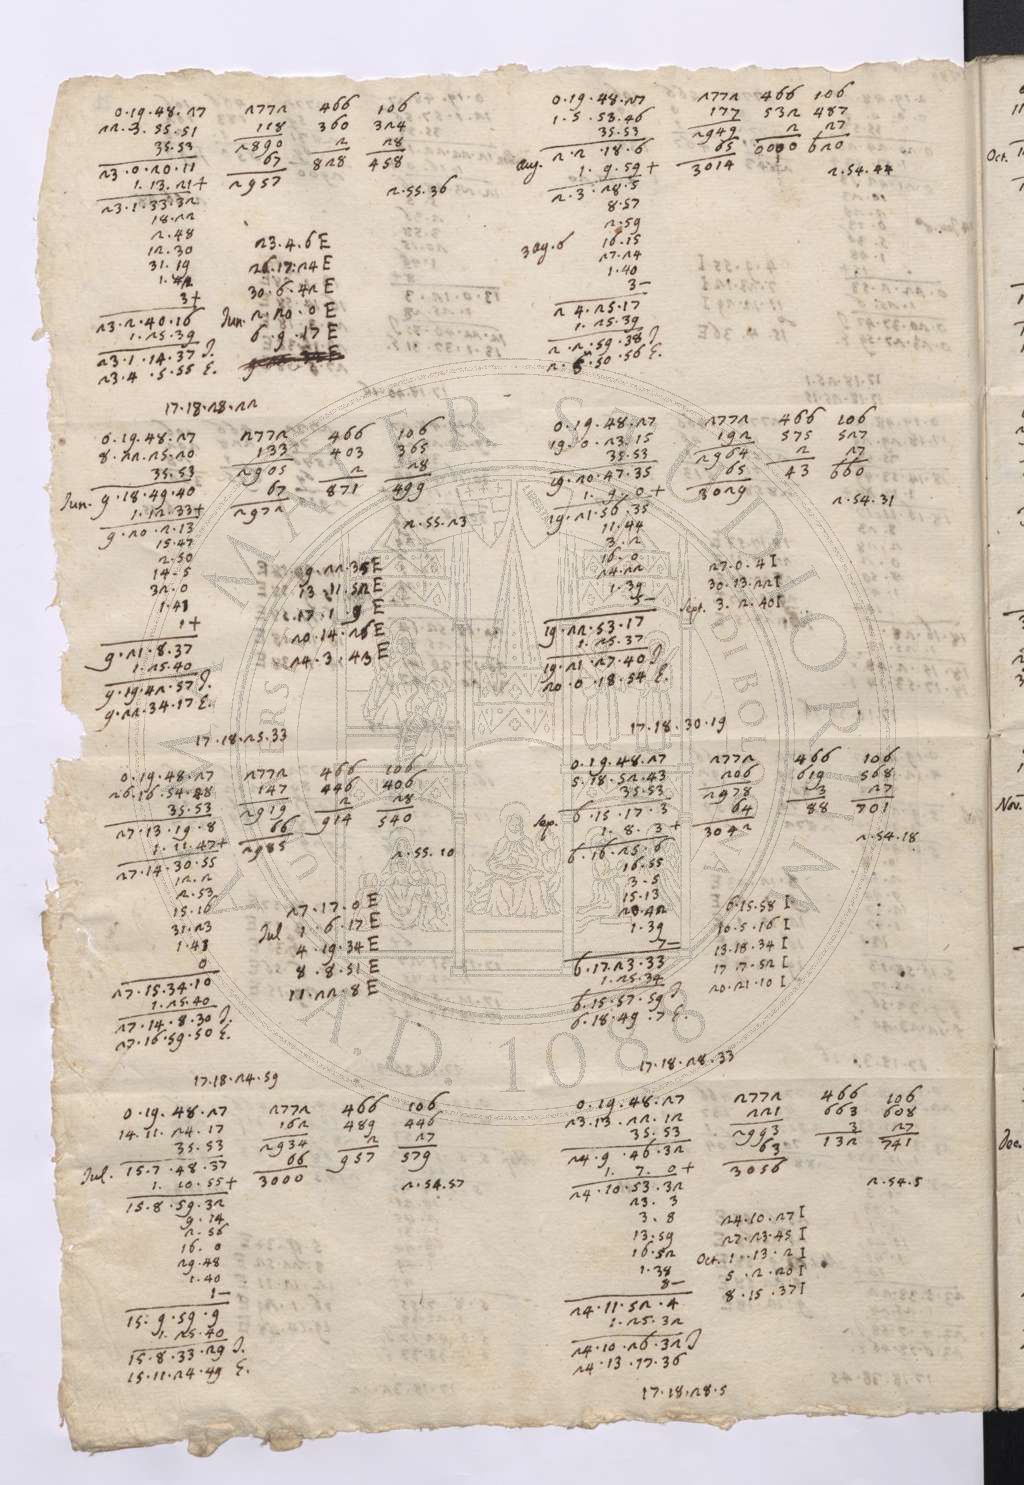 0.19.48.27 2772 466 106
22.3.55.51 118 360 324
35.53 2890 2 28
23.0.20.11 67 828 458
1.13.21+ 2957
23.1.33.32 2.55.36
18.22
2.48
12.30 23.4.6 E
31.19 26.17.24 E
1.42 30.6.42 E
3+ Jun. 2.20.0 E
23.2.40.16 6.9.17 E
1.25.39
23.1.14.37 J.
23.4.5.55 E.
17.18.28.22
0.19.48.27 2772 466 106
8.22.25.20 133 403 365
35.53 2905 2 28
Jun. 9.18.49.40 67 871 499
1.12.33+ 2972
9.20.2.13 2.55.23
15.47
2.50
14.5 9.22.35 E
32.0 13.11.52 E
1.41 17.1.9 E
1+ 20.14.26 E
9.21.8.37 24.3.43 E
1.25.40
9.19.42.57 J.
9.22.34.17 E.
17.18.25.33
0.19.48.27 2772 466 106
26.16.54.48 147 446 406
35.53 2919 2 28
27.13.19.8 66 914 540
1.11.47+ 2985
27.14.30.55 2.55.10
12.2
2.53
15.16 27.17.0 E
31.23 Jul 1.6.17 E
1.41 4.19.34 E
0 8.8.51 E
27.15.34.10 11.22.8 E
1.25.40
27.14.8.30 J.
27.16.59.50 E.
17.18.24.59
0.19.48.27 2772 466 106
14.11.24.17 162 489 446
35.53 2934 2 27
Jul. 15.7.48.37 66 957 579
1.10.55+ 3000
15.8.59.32 2.54.57
9.14
2.56
16.0
29.48
1.40
1-
15.9.59.9
1.25.40
15.8.33.29 J.
15.11.24.49 E.
0.19.48.27 2772 466 106
1.5.53.46 177 532 487
35.53 2949 2 27
Aug. 2.2.18.6 65 0000 620
1.9.59+ 3014
2.3.28.5 2.54.44
8.57
2.59
3 Ag.6 16.15
27.24
1.40
3-
2 4.25.17
1.25.39
2.2.59.38 J.
2.5.50.56 E.
0.19.48.27 2772 466 106
19.0.23.15 192 575 527
35.53 2964 2 27
19.20.47.35 65 43 660
1.9.0+ 3029
19.21.56.35 2.54.31
11.44
3.2
16.0
24.22 27.0.4 I
1.39 30.13.22 I
5- Sept. 3.2.40 I
19.22.53.17
1.25.37
19.21.27.40 J
20.0.18.54 E.
17.18.30.19
0.19.48.27 2772 466 106
5.18.52.43 206 619 568
35.53 2978 3 27
Sep. 6.15.17.3 64 88 701
1.8.3+ 3042
6.16.25.6 2.54.18
16.55
3.5
15.13
20.42 6.15.58 I
1.39 10.5.16 I
7- 13.18.34 I
6.17.23.33 17.7.52 I
1.25.34 20.21.10 I
6.15.57.59 J
6.18.49.7 E.
17.18.28.33
0.19.48.27 2772 466 106
23.13.22.12 221 663 608
35.53 2993 3 27
24.9.46.32 63 132 741
1.7.0+ 3056
24.10.53.32 2.54.5
23.3
3.8
13.59 24.10.27 I
16.52 27.23.45 I
1.38 Oct. 1.13.2 I
8- 5.2.20 I
24.11.52.4 8.15.37 I
1.25.32
24.10.26.32 J
24.13.17.36
17.18.28.5
Oct.
Nov.
Dec.
ALMA MATER STUDIORUM
A.D. 1088